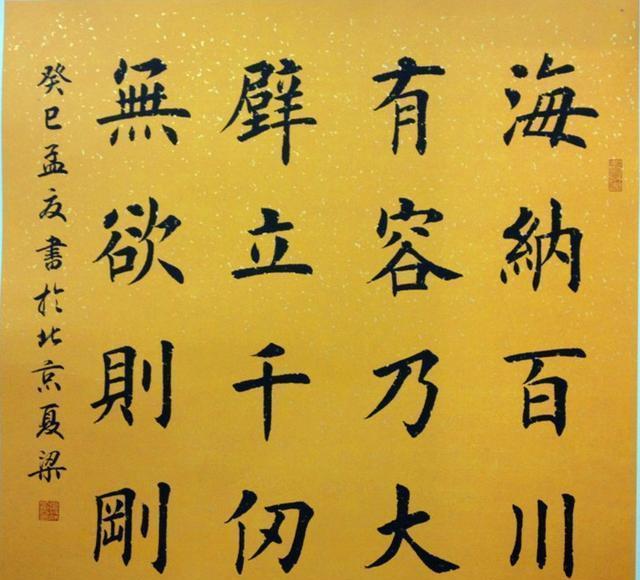 海納百川
有容乃大
壁立千仞
無欲則剛
癸巳孟夏書於北京夏梁